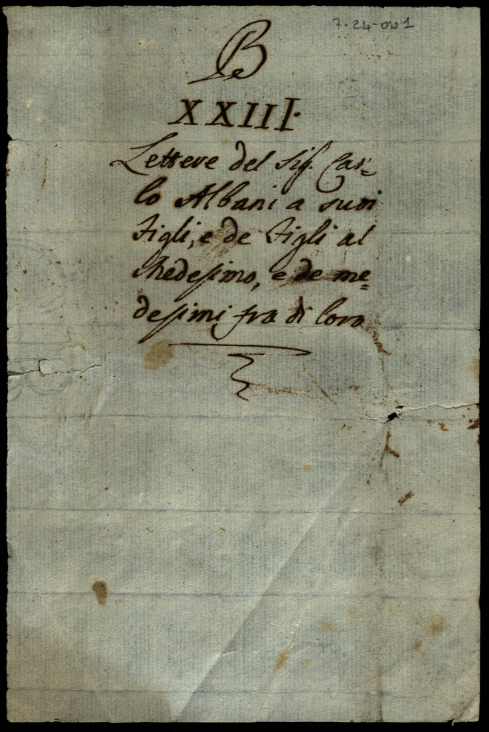 7-24-001
B
XXIII.
Lettere del Sig. Car=
lo Albani a suoi
Figli, e de Figli al
Medesimo, e de me=
desimi fra di loro